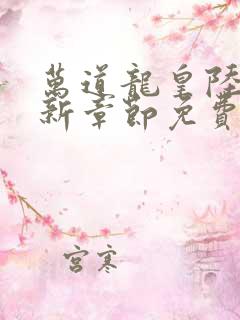 萬道龍皇陸
新章節免費
宮寒